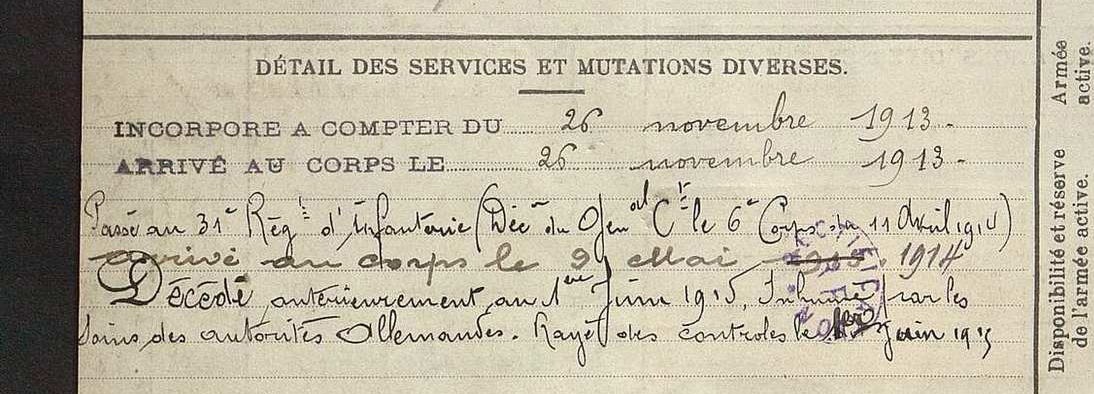 DÉTAIL DES SERVICES ET MUTATIONS DIVERSES.
INCORPORE A COMPTER DU 26 novembre 1913.
ARRIVÉ AU CORPS LE 26 novembre 1913.
Passé au 31e Régt d'Infanterie (Décon du Génal Ct le 6e Corps du 11 Avril 1914)
arrivé au corps le 9 Mai 1913. 1914
Décédé antérieurement au 1er Juin 1915, Inhumé par les
soins des autorités Allemandes. Rayé des contrôles le 1er Juin 1915
Armée active.
Disponibilité et réserve de l'armée active.